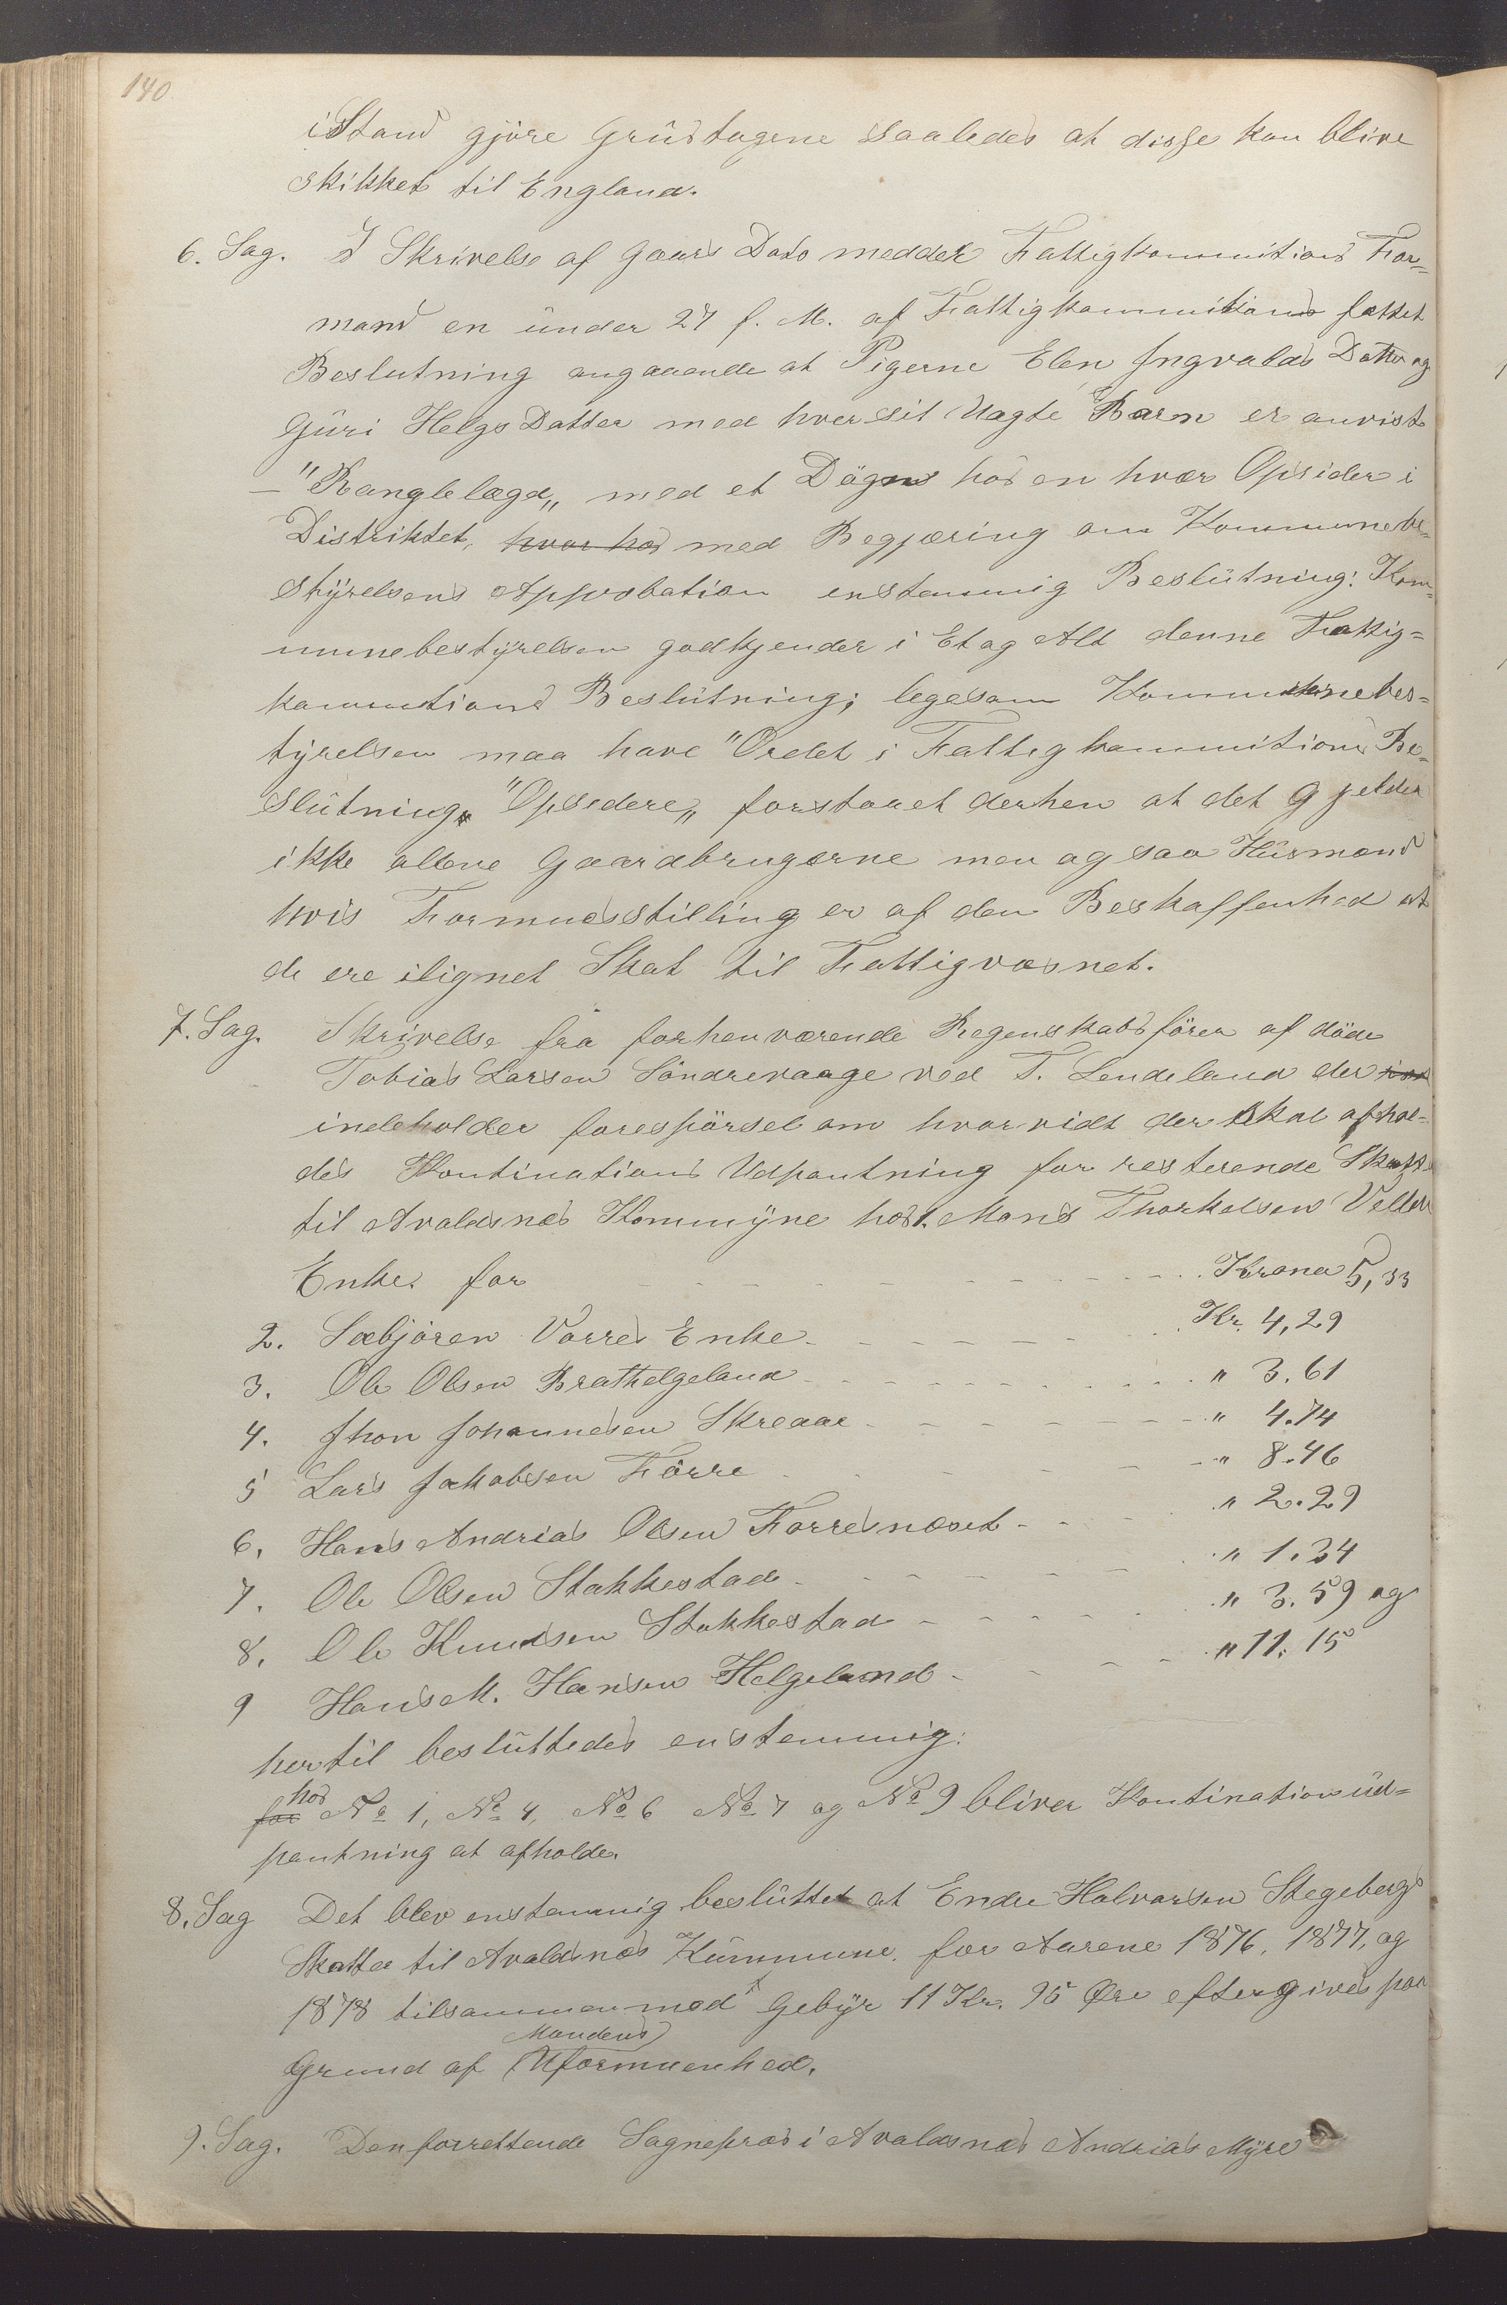 140
iStand gjöre Grüstagene saaledes at disse kan blive
skikket til England.
6. Sag. I Skrivelse af Gaars Dato meddelt Fattigkommitions For-
mand en ünder 27 f. M. af Fattigkommitions fattet
Beslutning angaaende at Pigerne Elen Ingvalds Datter og
Güri Helgs Datter med hver sit Uægte Barn er anvist
— "Ranglelægd„ med et Dögns hos en hver Opsider i
Distriktet, hvor hos med Begjæring om Kommunebe-
styrelsens Approbation enstemmig Beslütning: Kom-
munebestyrelsen godkjender i Et og Alt denne Fattig-
kommitions Beslütning; legesom Kommunebes-
tyrelsen maa have "Ordet i Fattigkommitions Be-
slütning "Opsedere„ forstaaet derhen at det gjelder
ikke allene Gaardbrugerne men og saa Hüsmænd
hvis Formuesstilling er af den Beskaffenhed at
de ere ilignet Skat til Fattigvæsnet.
7. Sag. Skrivelse fra forhenværende Regenskabsförer af döde
Tobias Larsen Söndrevaage ved T. Lendeland der
indeholder forespörsel om hvorvidt der skal afhol-
des Kontinations Udpantning for resterende Skatte
til Avaldsnes Kommyne hos 1. Mons Thorkelsens Velde
Enke for - - - - Kroner 5,33
2. Sæbjören Vorres Enke - - - - Kr. 4,29
3. Ole Olsen Brathelgeland - - - - " 3.61
4. Jhon Johannesen Skreaae - - - - " 4.74
5 Lars Jakobsen Förre - - - - " 8.46
6. Hans Andrias Olsen Forresnæset - - - - " 2.29
7. Ole Olsen Stakkestad - - - - " 1.34
8. Ole Knudsen Stakkestad - - - - " 3.59 og
9 Hans M. Hansen Helgeland - - - - " 11.15
hertil beslüttedes enstemmig:
for hos No 1, No 4, No 6 No 7 og No 9 bliver Kontinationsüd-
pantning at afholde.
8. Sag Det blev enstemmig beslüttet at Endre Halvorsen Stegebergs
Skatter til Avaldsnes Kümmune for Aarene 1876, 1877, og
1878 tilsammen med Gebyr 11 Kr. 95 Øre eftergives paa
Grund af Mandens Uformuenhed.
9. Sag. Den forrettende Sognepræs i Avaldsnes Andrias Myre